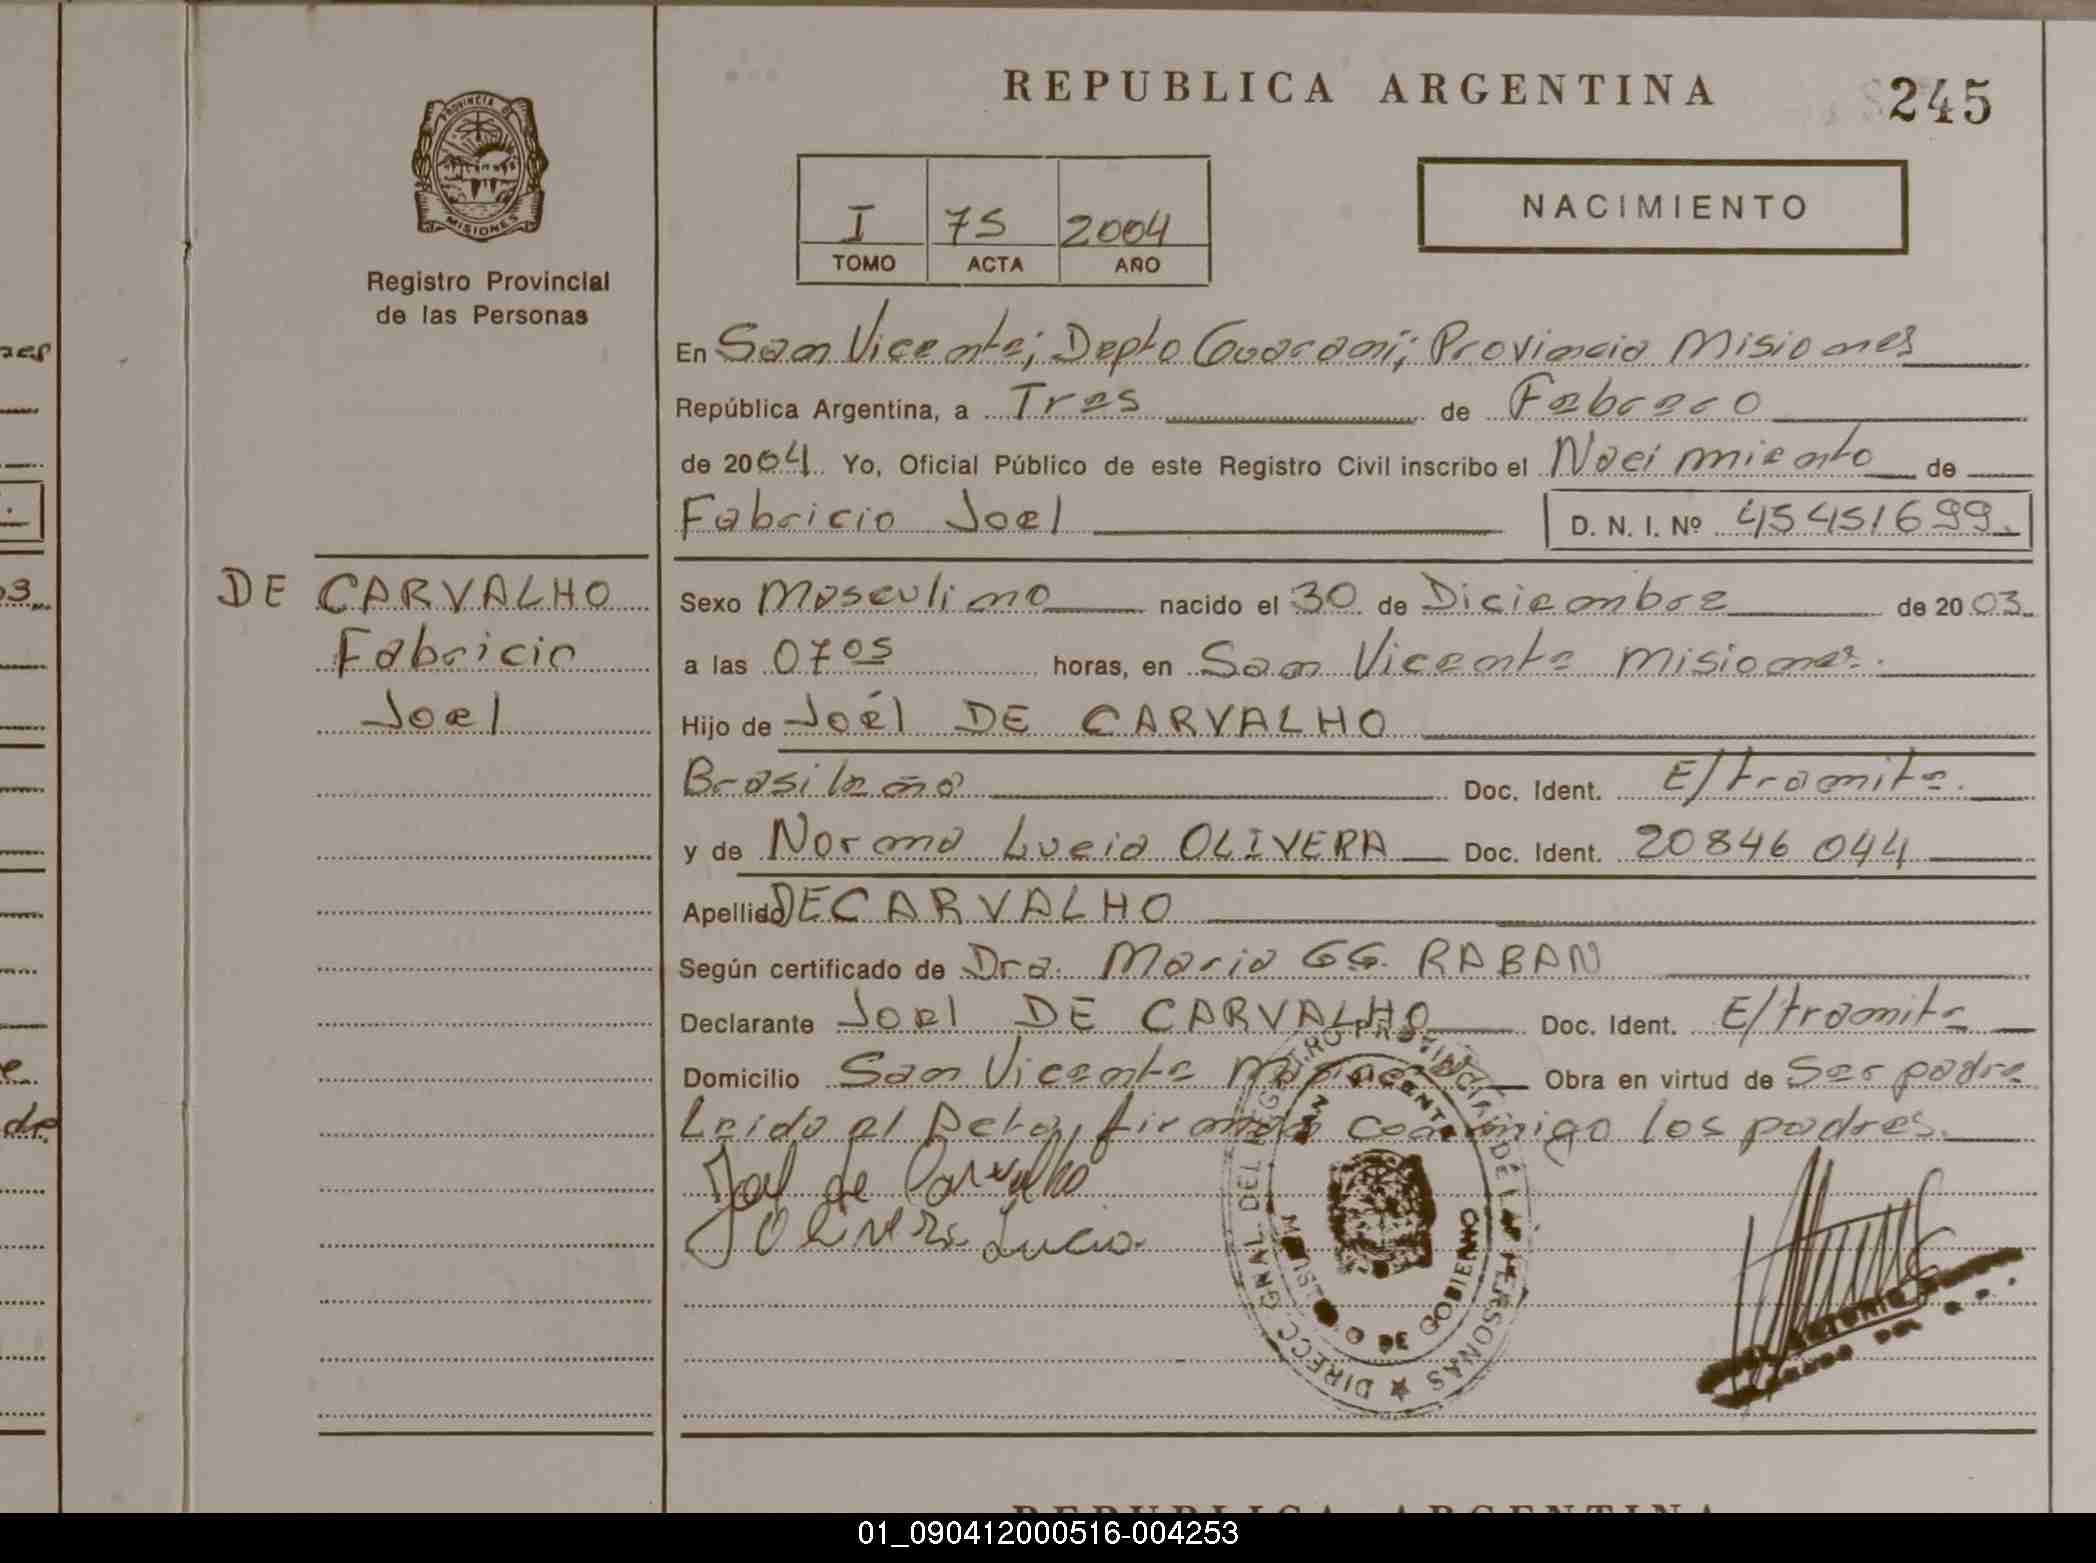 REPUBLICA ARGENTINA
245
PROVINCIA D
MISIONES
Registro Provincial
de las Personas
I 75 2004
TOMO ACTA AÑO
NACIMIENTO
En San Vicente; Depto Guarani; Provincia Misiones
República Argentina, a Tres de Febrero
de 2004 Yo, Oficial Público de este Registro Civil inscribo el Nacimiento de
Fabricio Joel D. N. I. Nº 45451699.
DE CARVALHO
Fabricio
Joel
Sexo Masculino nacido el 30 de Diciembre de 2003
a las 07 05 horas, en San Vicente Misiones.
Hijo de Joél DE CARVALHO
Brasileño Doc. Ident. E/tramite.
y de Norma Lucia OLIVERA Doc. Ident. 20846044
Apellido DE CARVALHO
Según certificado de Dra. Maria GG. RABAN
Declarante Joel DE CARVALHO Doc. Ident. E/tramite
Domicilio San Vicente Misiones Obra en virtud de Ser padre
Leido el Acta, firman conmigo los padres.
Joel de Carvalho
Olivera Lucia
DIRECC GRAL DEL REGISTRO PROVINCIAL DE LAS PERSONAS
SAN VICENTE
MINISTERIO DE GOBIERNO
ANTONIO
DEL
REPUBLICA ARGENTINA
01_090412000516-004253